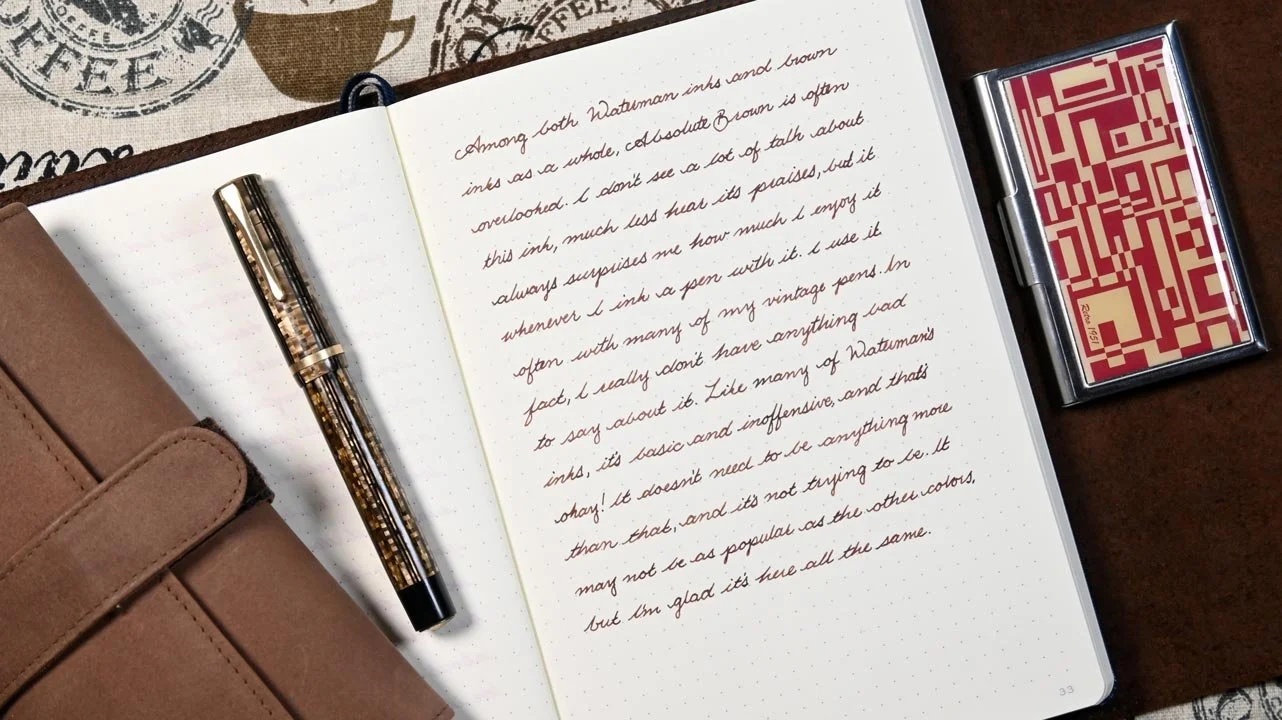 OFFEE
COFFEE
Among both Waterman inks and brown
inks as a whole, Absolute Brown is often
overlooked. I don't see a lot of talk about
this ink, much less hear its praises, but it
always surprises me how much I enjoy it
whenever I ink a pen with it. I use it
often with many of my vintage pens. In
fact, I really don't have anything bad
to say about it. Like many of Waterman's
inks, it's basic and inoffensive, and that's
okay! It doesn't need to be anything more
than that, and it's not trying to be. It
may not be as popular as the other colors,
but I'm glad it's here all the same.
33
Retro 1951